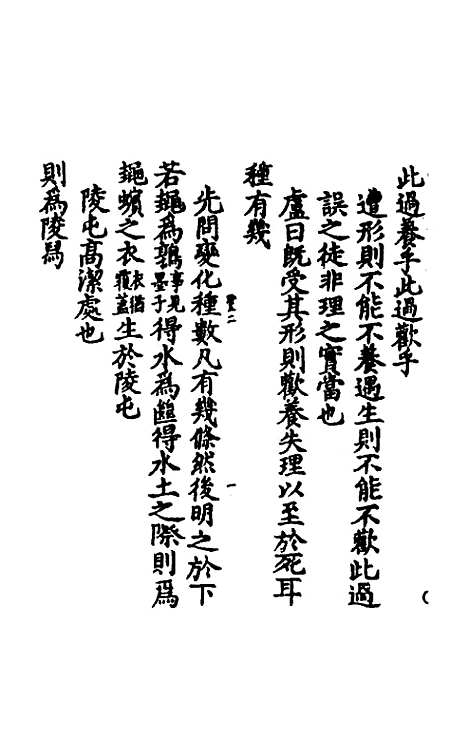 此過養乎此過歡乎
遭形則不能不養遇生則不能不歡此過
誤之徒非理之實當也
盧曰既受其形則歡養失理以至於死耳
種有幾
先問變化種數凡有幾條然後明之於下
若䵷為鶉事見墨子得水為㡭得水土之際則為
䵷蠙之衣衣猶覆蓋生於陵屯
陵屯高潔處也
則為陵舄